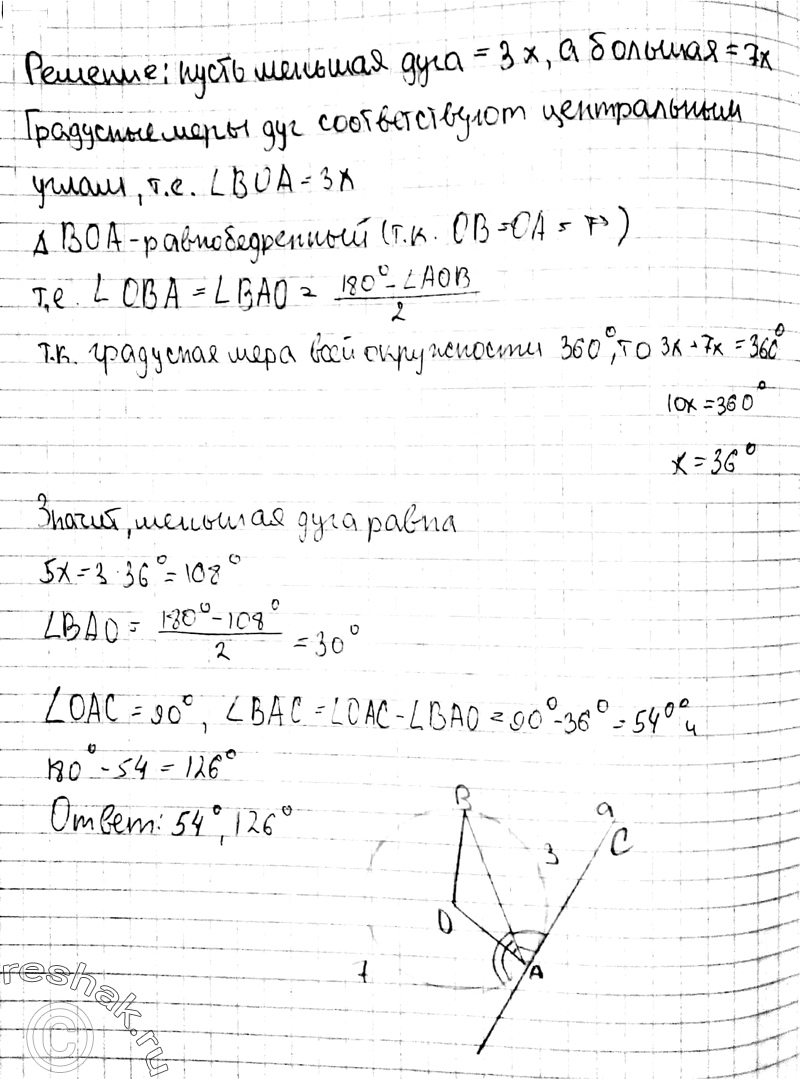 Решение: пусть меньшая дуга = 3x, а большая = 7x
Градусные меры дуг соответствуют центральным
углам, т.е. ∠BOA = 3x
Δ BOA - равнобедренный (т.к. OB = OA = r)
т.е. ∠OBA = ∠BAO = (180° - ∠AOB)/2
т.к. градусная мера всей окружности 360°, то 3x + 7x = 360°
10x = 360°
x = 36°
Значит, меньшая дуга равна
5x = 3·36° = 108°
∠BAO = (180° - 108°)/2 = 30°
∠OAC = 90°, ∠BAC = ∠OAC - ∠BAO = 90° - 36° = 54° и
180° - 54 = 126°
Ответ: 54°, 126°
B
a
C
3
O
A
7
reshak.ru
©